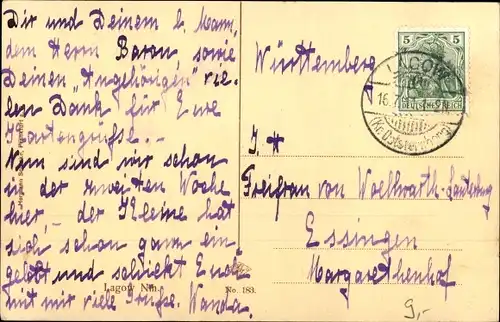 Dir und Deinem l. Mann,
dem Herrn Baron, sowie
Deinen "Angehörigen" vie-
len Dank für Eure
Kartengrüsse.
Nun sind wir schon
in der zweiten Woche
hier, der Kleine hat
sich schon ganz ein-
gelebt und schickt Euch
mit mir viele Grüße. Wanda.
Lagow Nm.
No. 183.
Württemberg
5 5
DEUTSCHES REICH
LAGOW
16.7
(Kr. Oststernberg)
Freifrau von Woellwarth-Lauterburg
Essingen
Margarethenhof
9,-